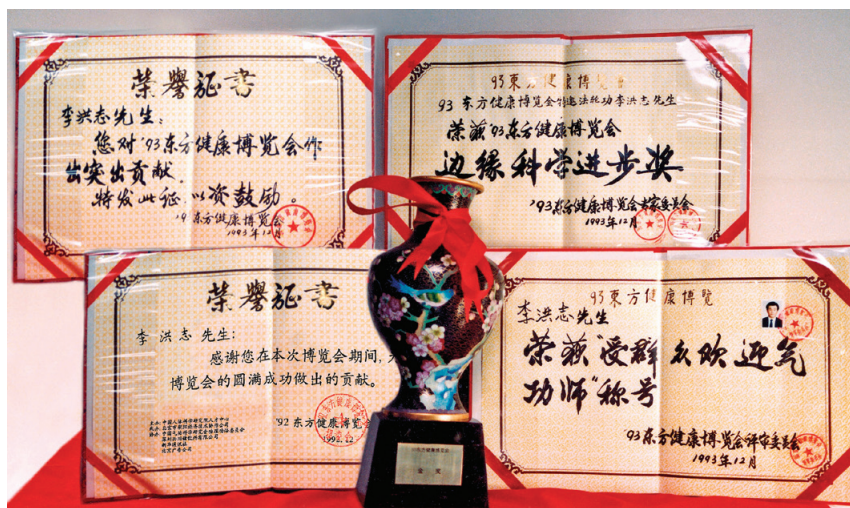 荣誉证书
李洪志先生：
您对'93东方健康博览会作
出突出贡献
特发此证，以资鼓励。
'9 东方健康博览会
1993年12月
93東方健康博览
93东方健康博览会特邀法轮功李洪志先生
荣获'93东方健康博览会
边缘科学进步奖
'93东方健康博览会专家委员会
1993年12月
荣誉证书
李洪志先生：
感谢您在本次博览会期间，
博览会的圆满成功做出的贡献。
'92东方健康博览会
1992.12
93東方健康博览
李洪志先生
荣获“受群众欢迎气
功师”称号
93东方健康博览会评审委员会
1993年12月
东方健康博览会
金奖